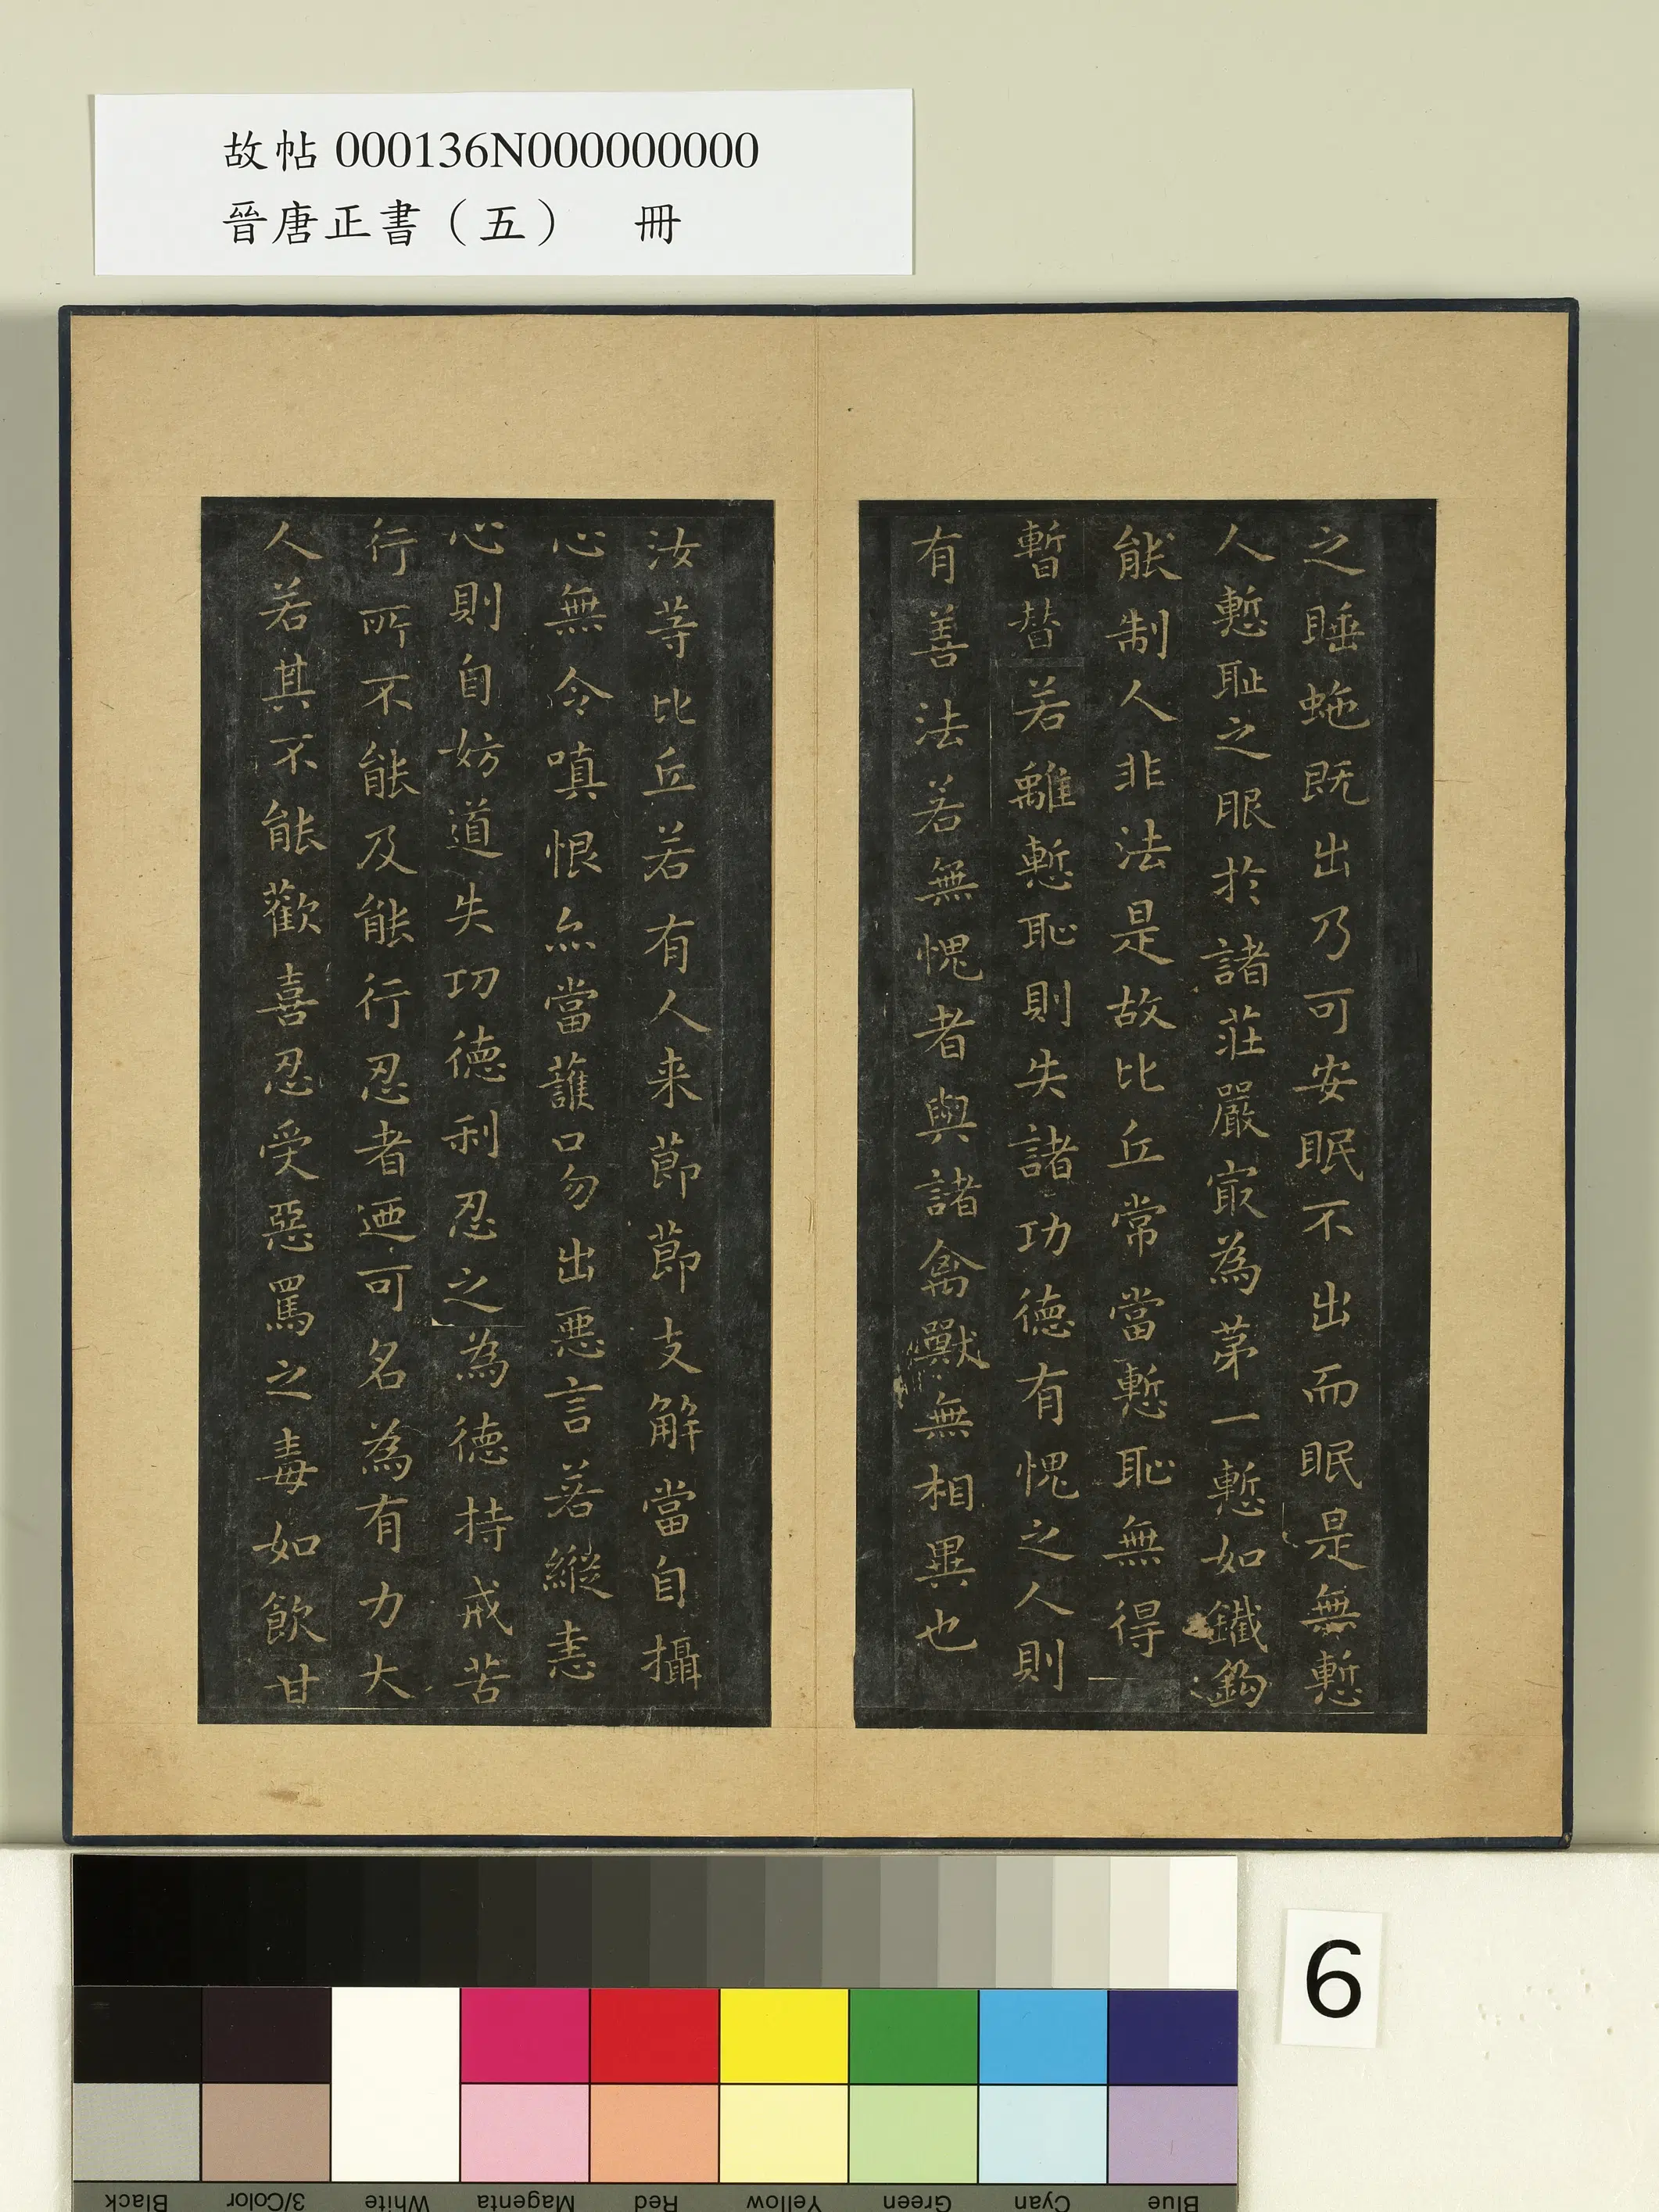 故帖 000136N000000000
晉唐正書（五） 冊
之睡虵既出乃可安眠不出而眠是無慙
人慙耻之服於諸莊嚴冣為苐一慙如鐵鈎
能制人非法是故比丘常當慙恥無得
暫替若離慙恥則失諸功德有愧之人則
有善法若無愧者與諸禽獸無相異也
汝莟比丘若有人来莭莭支解當自攝
心無令嗔恨亦當護口勿出悪言若縱恚
心則自妨道失功德利忍之為德持戒苦
行所不能及能行忍者迺可名為有力大
人若其不能歡喜忍受惡罵之毒如飲甘
6
Black
3/Color
White
Magenta
Red
Yellow
Green
Cyan
Blue